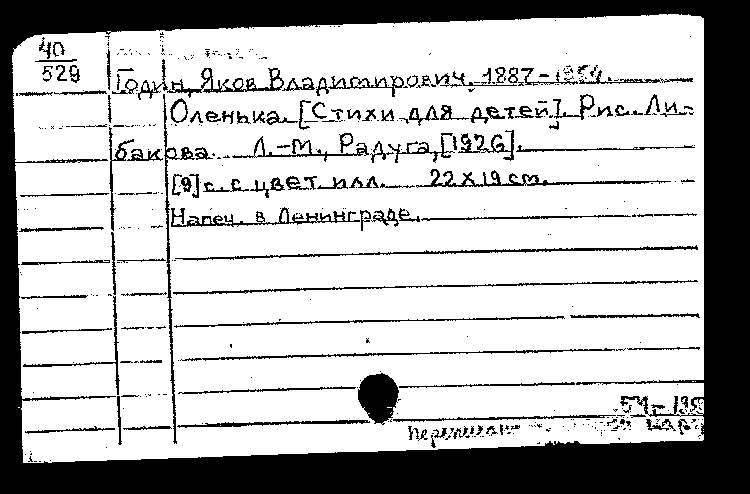 40
529
Годин, Яков Владимирович, 1887-1954.
Оленька. [Стихи для детей]. Рис. Ли-
бакова. Л.-М., Радуга, [1926].
[9] с. с цвет. илл. 22×19 см.
Напеч. в Ленинграде.
54-195